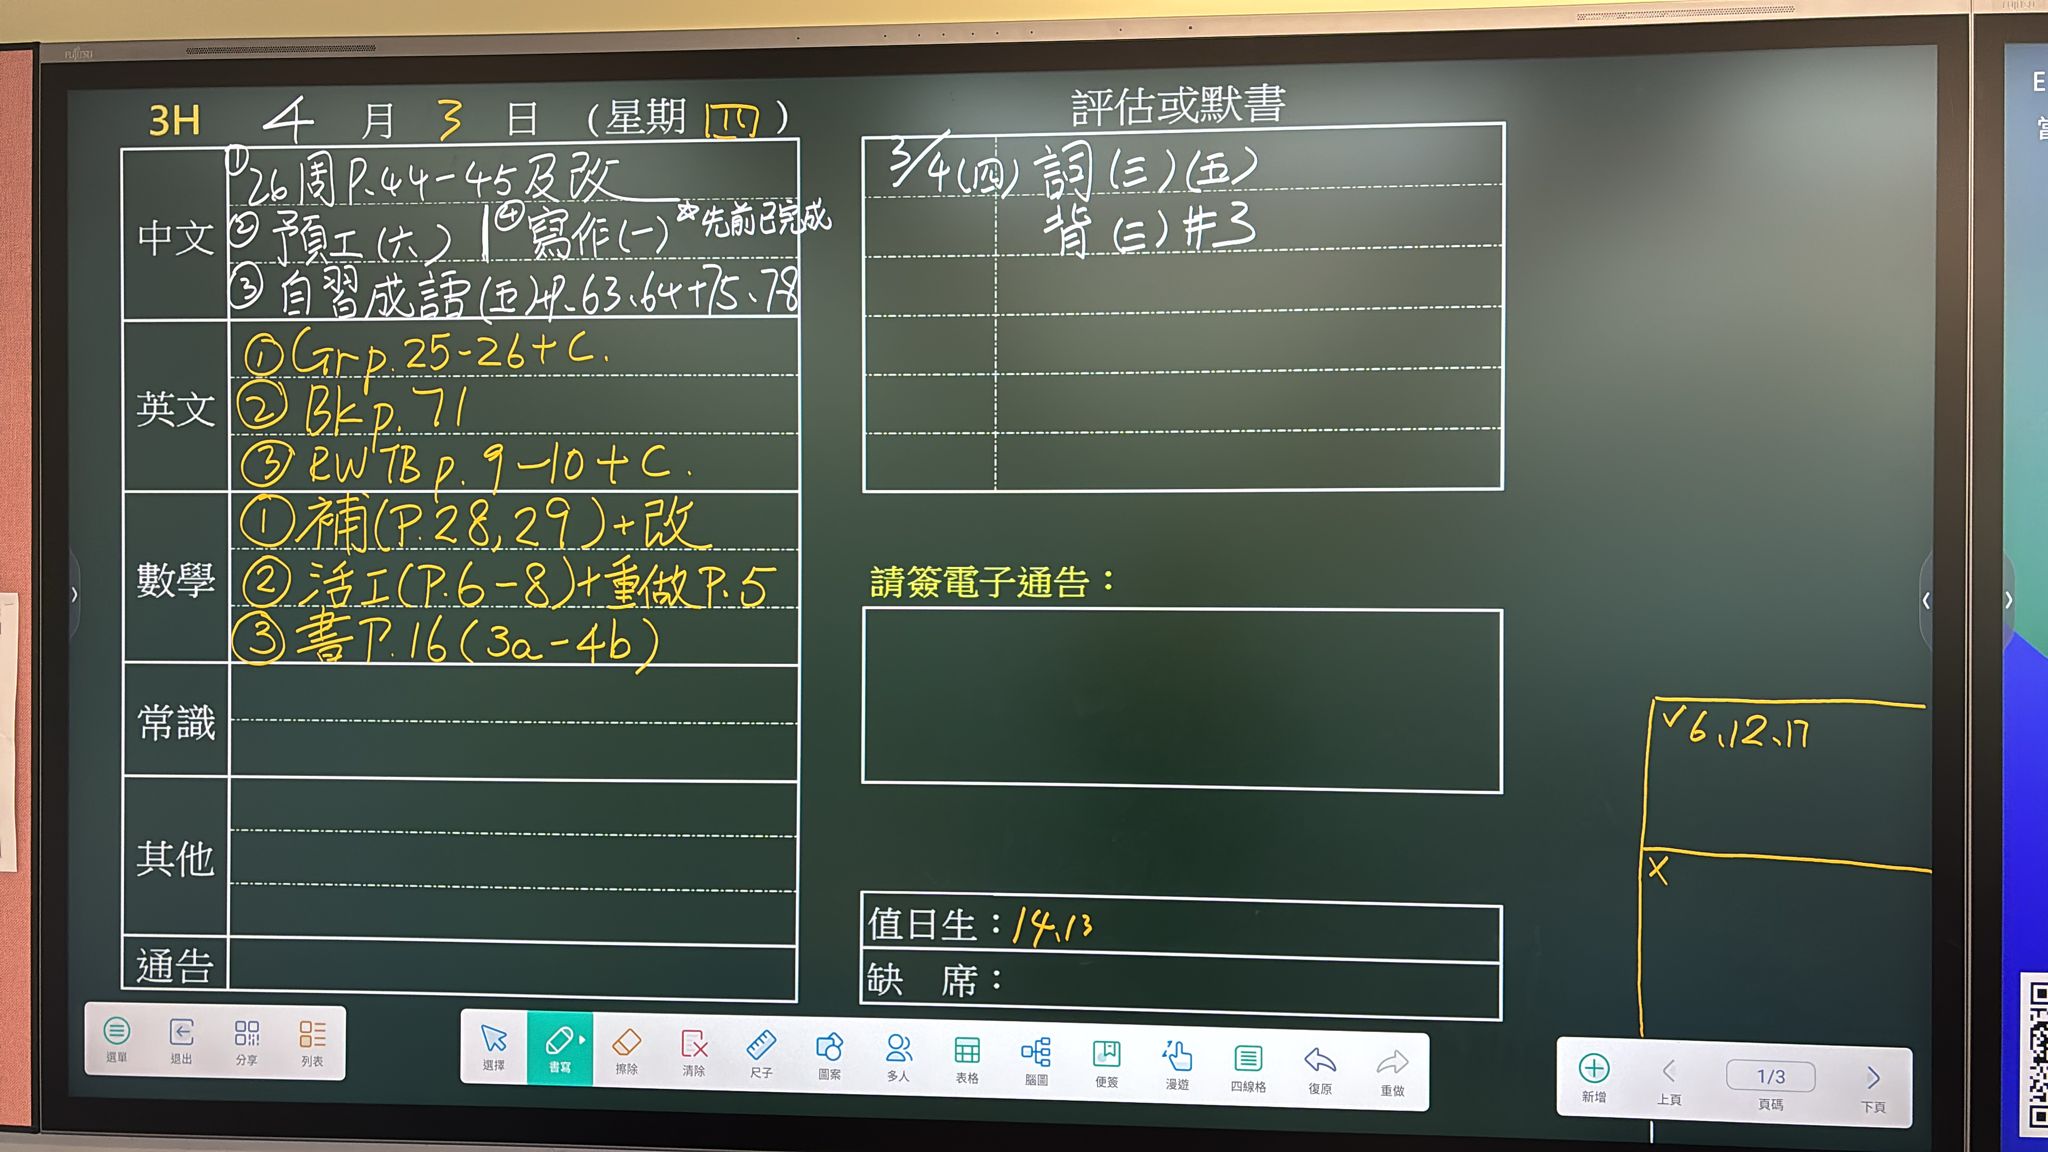 FUJITSU
3H 4 月 3 日 (星期 四)
中文
①26周P.44-45及改
②預工(六) | ④寫作(一) *先前已完成
③自習成語(五)+P.63、64+75、78
英文
①Gr p.25-26+C.
②Bk p.71
③RWTB p.9-10+C.
數學
①補(P.28,29)+改
②活工(P.6-8)+重做P.5
③書P.16(3a-4b)
常識
其他
通告
評估或默書
3/4(四) 詞(三)(五)
背(三)#3
請簽電子通告：
值日生：14、13
缺 席：
✓6、12、17
X
選單 退出 分享 列表
選擇 書寫 擦除 清除 尺子 圖案 多人 表格 腦圖 便簽 漫遊 四線格 復原 重做
新增 上頁 1/3 頁碼 下頁